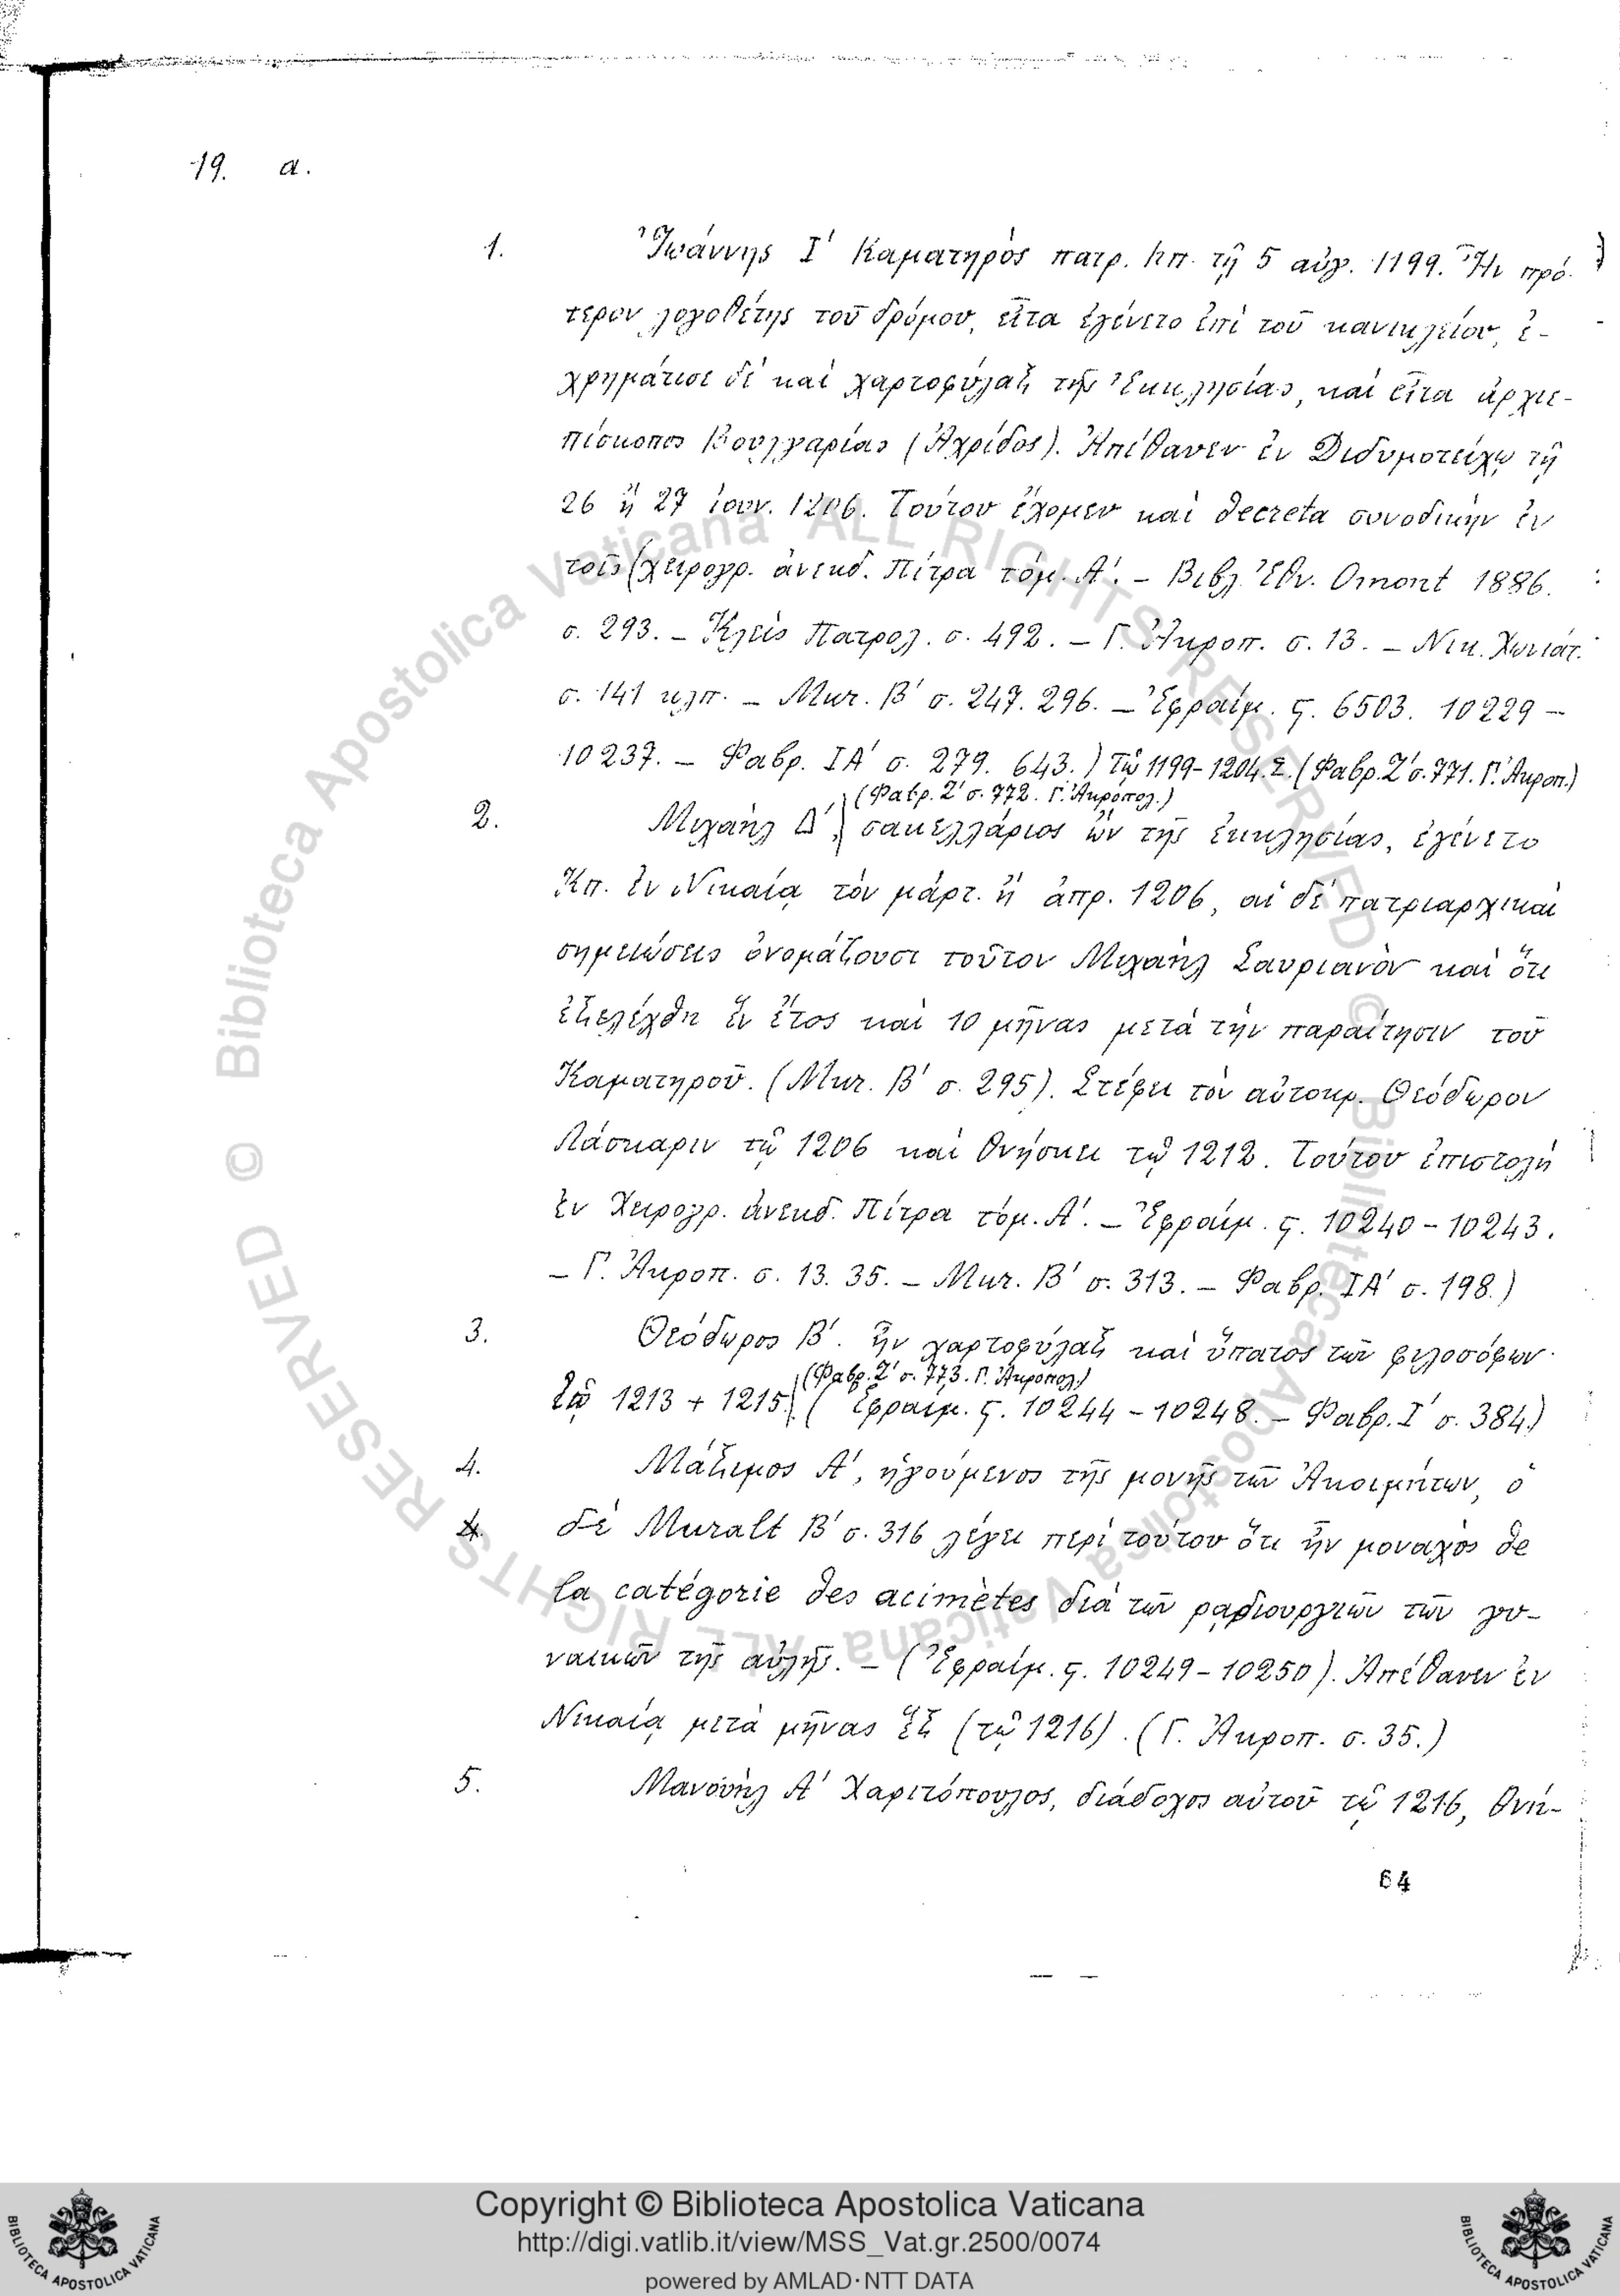 19. α.
1. Ἰωάννης Ι′ Καματηρὸς πατρ. Κπ. τῇ 5 αὐγ. 1199. Ἦν πρό-
τερον λογοθέτης τοῦ δρόμου, εἶτα ἐγένετο ἐπὶ τοῦ κανικλείου, ἐ-
χρημάτισε δὲ καὶ χαρτοφύλαξ τῆς Ἐκκλησίας, καὶ εἶτα ἀρχιε-
πίσκοπος Βουλγαρίας (Ἀχρίδος). Ἀπέθανεν ἐν Διδυμοτείχῳ τῇ
26 ἢ 27 ἰουν. 1206. Τούτου ἔχομεν καὶ decreta συνοδικὴν ἐν
τοῖς (χειρογρ. ἀνεκδ. Πίτρα τόμ. Α′. – Βιβλ. Ἐθν. Omont 1886.
σ. 293. – Κλεὶς Πατρολ. σ. 492. – Γ. Ἀκροπ. σ. 13. – Νικ. Χωνιάτ.
σ. 141 κλπ. – Μυρ. Β′ σ. 247. 296. – Ἐφραίμ. ς. 6503. 10229 –
10237. – Φαβρ. ΙΑ′ σ. 279. 643.) Τῷ 1199-1204. Σ. (Φαβρ. Ζ′ σ. 771. Γ. Ἀκροπ.)
(Φαβρ. Ζ′ σ. 772. Γ. Ἀκροπολ.)
2. Μιχαὴλ Δ′, σακελλάριος ὢν τῆς ἐκκλησίας, ἐγένετο
Κπ. ἐν Νικαίᾳ τὸν μάρτ. ἢ ἀπρ. 1206, αἱ δὲ πατριαρχικαὶ
σημειώσεις ὀνομάζουσι τοῦτον Μιχαὴλ Σαυριανὸν καὶ ὅτι
ἐξελέχθη ἓν ἔτος καὶ 10 μῆνας μετὰ τὴν παραίτησιν τοῦ
Καματηροῦ. (Μυρ. Β′ σ. 295). Στέφει τὸν αὐτοκρ. Θεόδωρον
Λάσκαριν τῷ 1206 καὶ θνήσκει τῷ 1212. Τούτου ἐπιστολὴ
ἐν Χειρογρ. ἀνεκδ. Πίτρα τόμ. Α′. – Ἐφραίμ. ς. 10240 – 10243.
– Γ. Ἀκροπ. σ. 13. 35. – Μυρ. Β′ σ. 313. – Φαβρ. ΙΑ′ σ. 198.)
3. Θεόδωρος Β′. ἦν χαρτοφύλαξ καὶ ὕπατος τῶν φιλοσόφων
(Φαβρ. Ζ′ σ. 773. Γ. Ἀκροπολ.)
τῷ 1213 + 1215. (Ἐφραιμ. ς. 10244 – 10248. – Φαβρ. Ι′ σ. 384.)
4. Μάξιμος Α′, ἡγούμενος τῆς μονῆς τῶν Ἀκοιμήτων, ὁ
δὲ Muralt Β′ σ. 316 λέγει περὶ τούτου ὅτι ἦν μοναχὸς de
la catégorie des acimètes διὰ τῶν ραδιουργιῶν τῶν γυ-
ναικῶν τῆς αὐλῆς. – (Ἐφραίμ. ς. 10249 – 10250). Ἀπέθανεν ἐν
Νικαίᾳ μετὰ μῆνας ἓξ (τῷ 1216). (Γ. Ἀκροπ. σ. 35.)
5. Μανουὴλ Α′ Χαριτόπουλος, διάδοχος αὐτοῦ τῷ 1216, θνή-
64
© Biblioteca Apostolica Vaticana ALL RIGHTS RESERVED © Biblioteca Apostolica Vaticana ALL RIGHTS RESERVED
Copyright © Biblioteca Apostolica Vaticana
http://digi.vatlib.it/view/MSS_Vat.gr.2500/0074
powered by AMLAD·NTT DATA
BIBLIOTECA APOSTOLICA VATICANA
BIBLIOTECA APOSTOLICA VATICANA